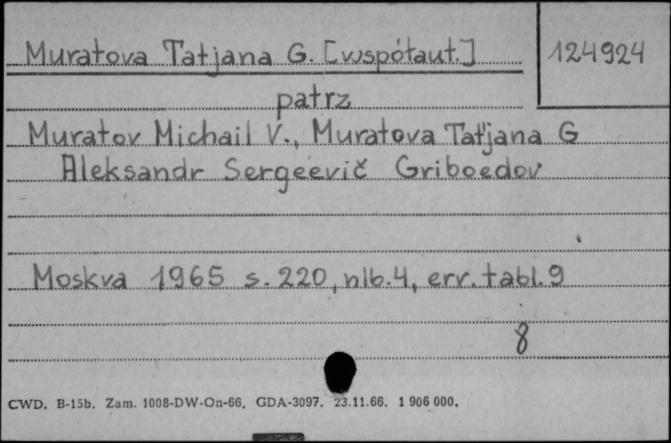 Muratova Tatjana G. [współaut.]
124924
patrz
Muratov Michail V., Muratova Tat'jana G
Aleksandr Sergeevič Griboedov
Moskva 1965 s. 220, nlb. 4, err. tabl. 9
8
CWD. B-15b. Zam. 1008-DW-On-66. GDA-3097. 23.11.66. 1 906 000.